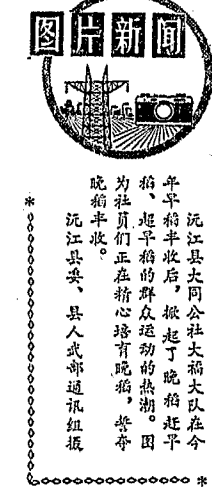 图片新闻
沅江县大同公社大福大队在今
年早稻丰收后，掀起了晚稻赶早
稻、超早稻的群众运动的热潮。图
为社员们正在精心培育晚稻，誓夺
晚稻丰收。
沅江县委、县人武部通讯组摄